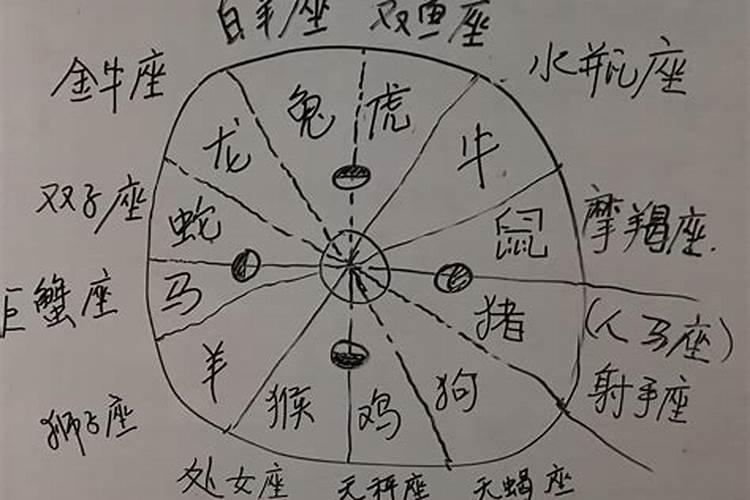 白羊座 双鱼座
金牛座 水瓶座
兔 虎
龙 牛
双子座 蛇 鼠 摩羯座
巨蟹座 马 猪 (人马座)
羊 猴 鸡 狗 射手座
狮子座
处女座 天秤座 天蝎座